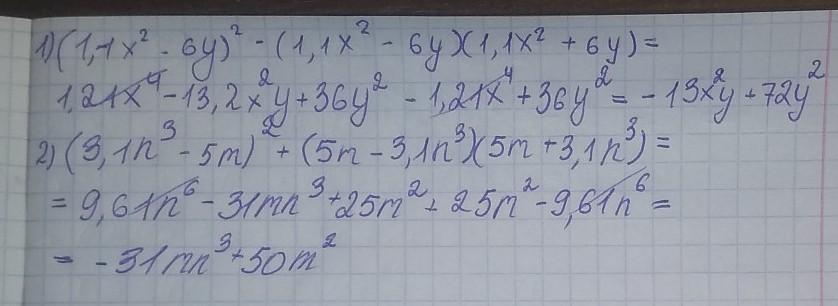 1) (1,1x² - 6y)² - (1,1x² - 6y)(1,1x² + 6y) =
1,21x⁴ - 13,2x²y + 36y² - 1,21x⁴ + 36y² = - 13x²y + 72y²
2) (3,1n³ - 5m)² + (5m - 3,1n³)(5m + 3,1n³) =
= 9,61n⁶ - 31mn³ + 25m² + 25m² - 9,61n⁶ =
= - 31mn³ + 50m²